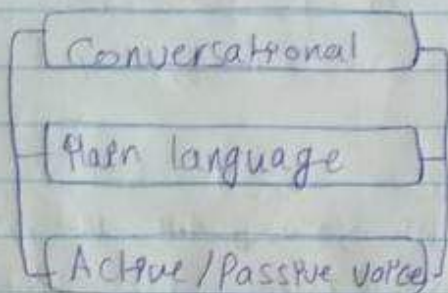 Conversational
Plain language
Active/Passive voice